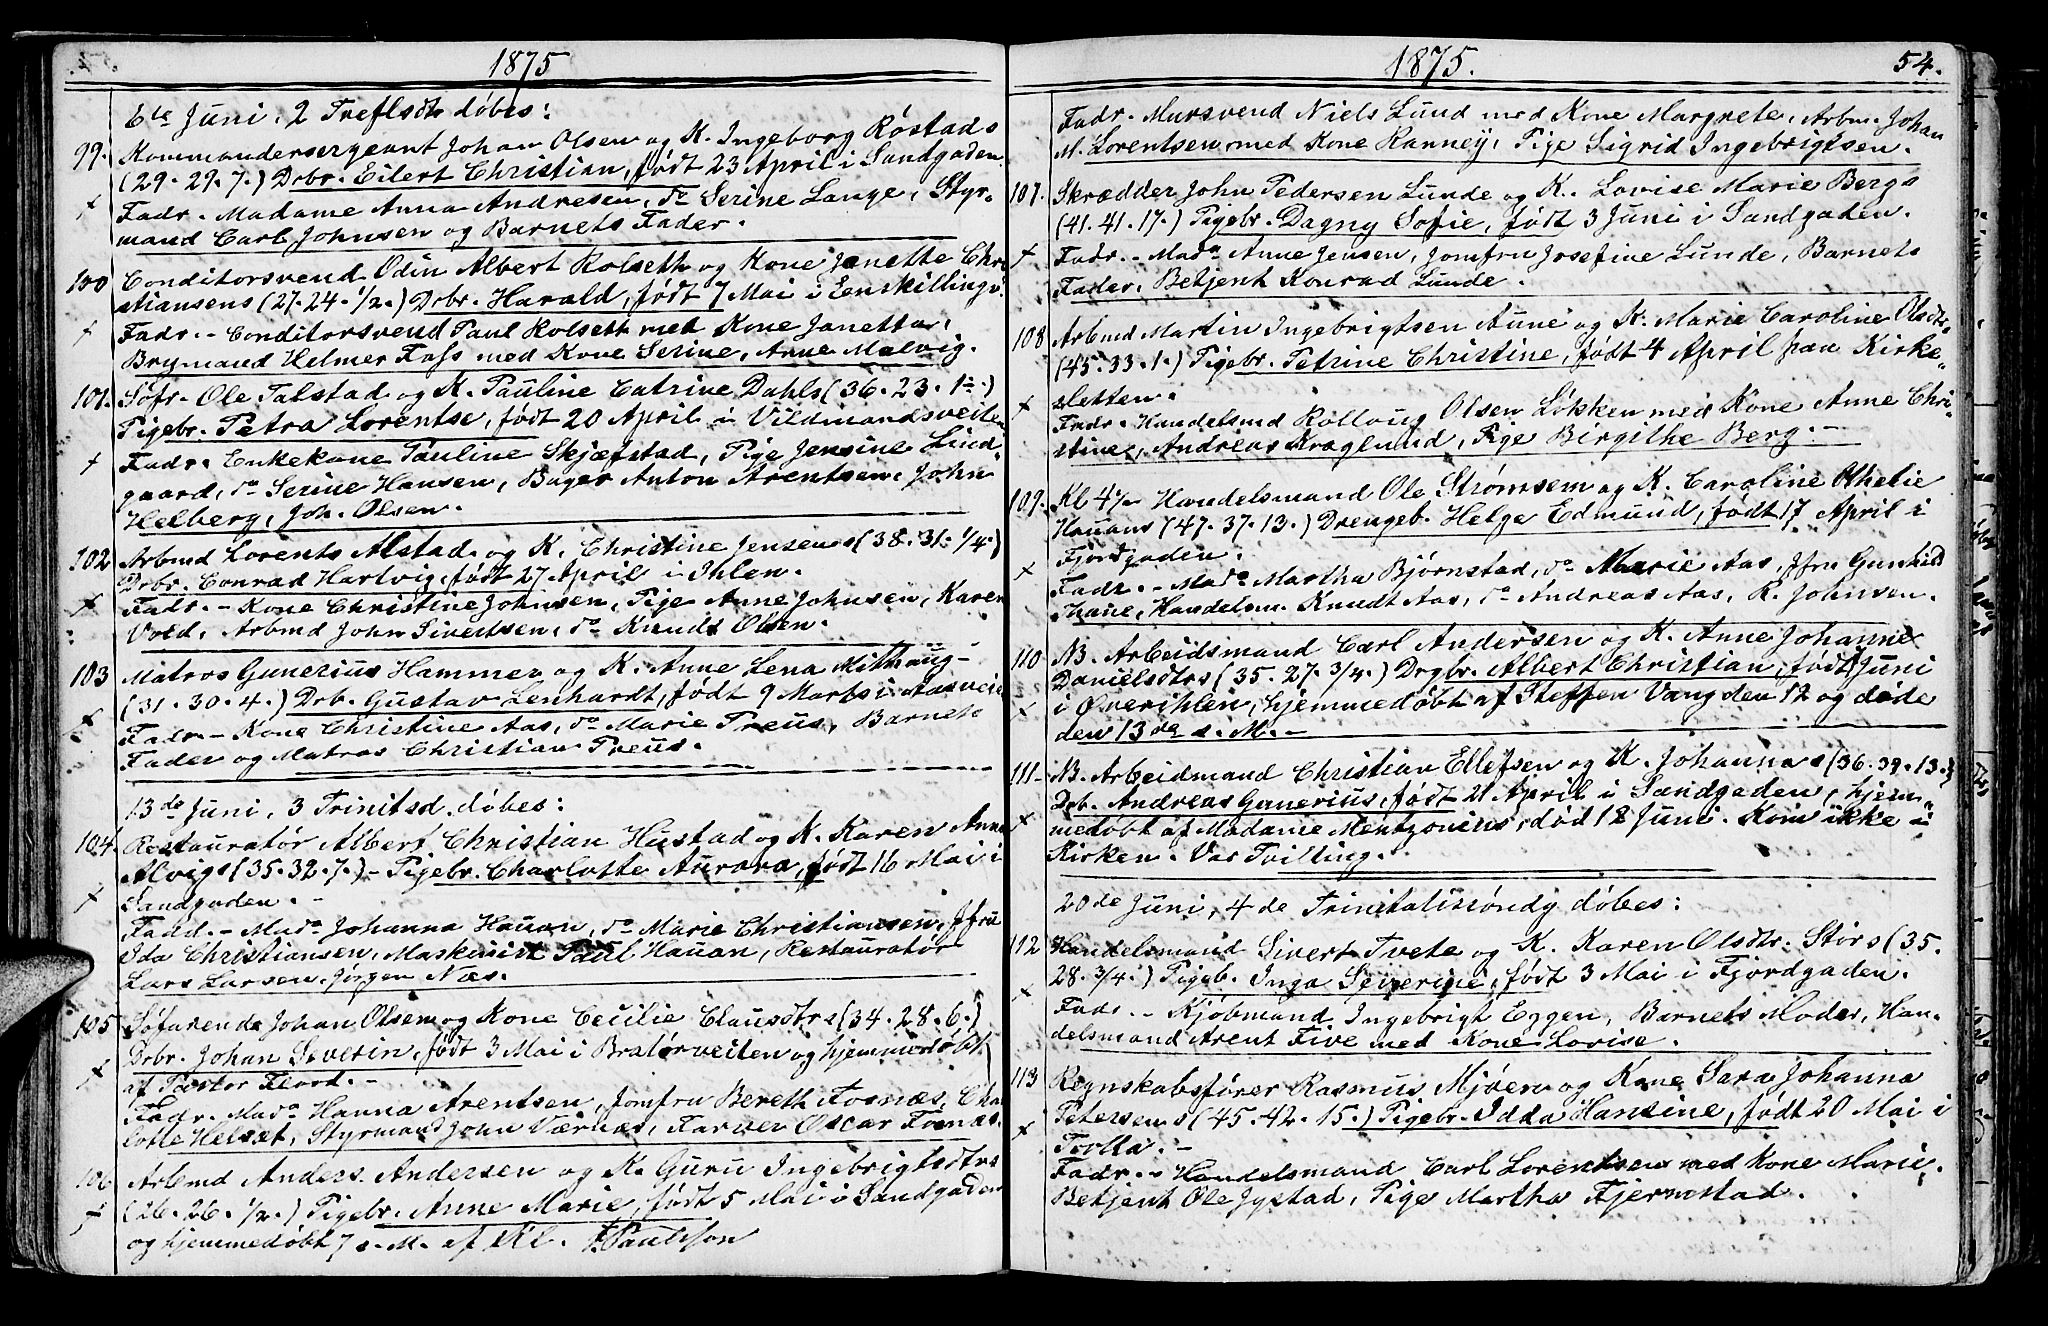 1875
6te Juni, 2 Treflsdt døbes:
99. Kommandersergeant Johan Olsen og K. Ingeborg Røstads
(29. 29. 7.) Drbr. Eilert Christian, født 23 April i Sandgaden.
Fadr. Madame Anna Andresen, do Serine Lange, Styr-
mand Carl Johnsen og Barnets Fader.
100 Conditorsvend Odin Albert Rolseth og Kone Janette Chri
stiansens (27. 24. 1/2.) Drbr. Harald, født 7 Mai i Eenskillingsv.
Fadr. - Conditorsvend Paul Rolseth med Kone Janetta,
Brymand Helmer Fass med Kone Serine, Anne Malvig.
101. Søfr. Ole Talstad og K. Pauline Catrine Dahls (36. 23. 1 1/2.)
Pigebr. Petra Lorentse, født 20 April i Vildmandsveiten
Fadr. Enkekone Pauline Skjæfstad, Pige Jensine Lind-
gaard, do Serine Hansen, Bager Anton Arentsen, John
Helberg, Joh. Olsen.
102 Arbmd Lorents Alstad og K. Christine Jensens (38. 31. 1/4.)
Drbr. Conrad Hartvig, født 27 April i Ihlen.
Fadr. - Kone Christine Johnsen, Pige Anne Johnsen, Karen
Vold, Arbmd John Sivertsen, do Knudt Olsen.
103 Matros Gunerius Hammer og K. Anne Lena Mithaug-
(31. 30. 4.) Drb. Gustav Lenhardt, født 9 Marts i Aasveie
Fadr - Kone Christine Aas, do Marie Preus, Barnets
Fader og Matros Christian Preus.
13de Juni, 3 Trinitsd. døbes:
104. Restauratør Albert Christian Hustad og K. Karen Anna
Alvigs (35. 32. 7.) - Pigebr. Charlotte Aurora, født 16 Mai i
Sandgaden. -
Fadd. - Mada Johanna Hauan, do Marie Christiansen, Jfru
Ida Christiansen, Maskinist Paul Hauan, Restauratør
Lars Larsen, Jørgen Næs.
105 Søfarende Johan Olsen og Kone Cecilie Clausdtrs (34. 28. 6.)
Drbr. Johan Severin, født 3 Mai i Bratørveiten og hjemmedøbt
af Pastor Flood. -
Fadr. Mada Hanna Arentsen, Jomfru Bereth Fosnæs, Cha
lotte Helset, Styrmand John Værnæs, Farver Oscar Fosnæs.
106 Arbmd Anders Andersen og K. Guru Ingebrigtsdtrs
(26. 26. 1/2.) Pigebr. Anne Marie, født 5 Mai i Sandgaden
og hjemmedøbt 7 s. M. af Kl. Paulsson
1875. 54.
Fadr. Mursvend Niels Lund med Kone Margrete, Arbm. Johan
M. Lorentsen med Kone Ranney, Pige Sigrid Ingebrigtsen.
107. Skrædder John Pedersen Lunde og K. Lovise Marie Bergs
(41. 41. 17.) Pigebr. Dagny Sofie, født 3 Juni i Sandgaden.
Fadr. - Mada Anne Jensen, Jomfru Josefine Lunde, Barnets
Fader, Betjent Konrad Lunde.
108 Arbmd Martin Ingebrigtsen Aune og K. Marie Caroline Olsdtrs
(45. 33. 1.) Pigebr. Petrine Christine, født 4 April paa Kirke-
sletten.
Fadr. Handelsmd Rolloug Olsen Løkken med Kone Anne Chri-
stine, Andreas Kraglund, Pige Birgithe Berg. -
109. Kl 4 1/2 Handelsmand Ole Strømsem og K. Caroline Othelie
Hauans (47. 37. 13.) Drengeb. Helge Edmund, født 17 April i
Fjordgaden.
Fadr. - Mada Martha Bjørnstad, do Marie Aas, Jfru Gunhild
Thane, Handelsm. Knudt Aas, do Andreas Aas, R. Johnsen.
110 NB. Arbeidsmand Carl Andersen og K. Anne Johanne
Danielsdtrs (35. 27. 3/4.) Drgbr. Albert Christian, født Juni
i Øverihlen, hjemmedøbt af Steffen Vang den 12 og døde
den 13de s. M. -
111. NB. Arbeidmand Christian Ellefsen og K. Johannas (36. 39. 13.)
Drb. Andreas Gunerius, født 21 April i Sandgaden, hjem-
medøbt af Madame Mentzonius, død 18 Juni. Kom ikke i
Kirken. Var Tvilling.
20de Juni, 4de Trinitatissøndg døbes:
112 Handelsmand Sivert Tvete og K. Karen Olsdtr. Störs (35.
28. 3/4.) Pigeb. Inga Severine, født 3 Mai i Fjordgaden.
Fadr. - Kjøbmand Ingebrigt Eggen, Barnets Moder, Han-
delsmand Arent Five med Kone Lovise.
113 Regnskabsfører Rasmus Mjøen og Kone Sara Johanna
Petersens (45. 42. 15.) Pigebr. Idda Hansine, født 20 Mai i
Trolla. -
Fadr. - Handelsmand Carl Lorentsen med Kone Marie,
Betjent Ole Jystad, Pige Martha Fjernestad.